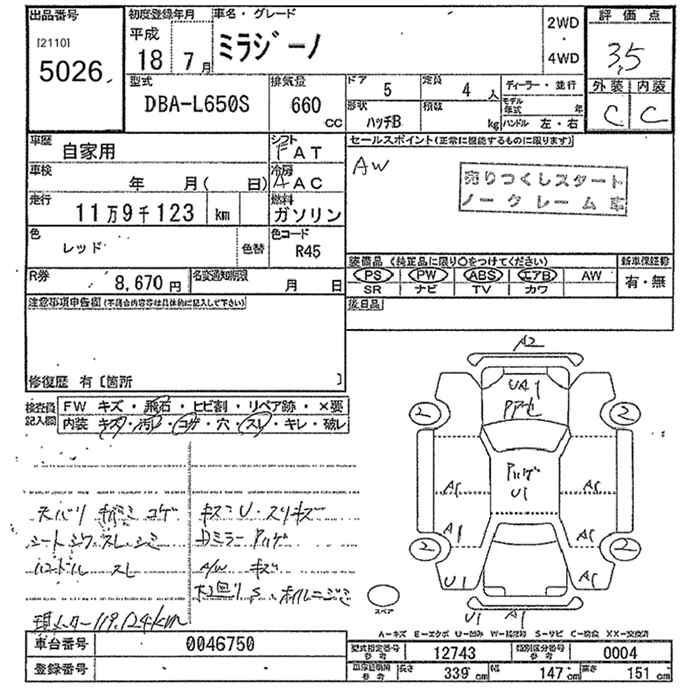 出品番号
[2110]
5026
初度登録年月
平成
18年 7月
車名・グレード
ミラジーノ
2WD
・
4WD
評価点
3.5
外装 内装
C C
型式
DBA-L650S
排気量
660 CC
ドア 5
定員 4 人
形状 ハッチB
積数 kg
ディーラー・並行
モデル年式 年
ハンドル 左・右
車歴 自家用
シフト FAT
車検 年 月( 日)
冷房 AAC
走行 11万9千123 km
燃料 ガソリン
色 レッド
色替
色コード R45
R券 8,670円
名変通知期限 月 日
セールスポイント(正常に機能するものに限ります)
AW
売りつくしスタート
ノークレーム車
装備品 (純正品に限り○をつけてください)
PS PW ABS エアB AW
SR ナビ TV カワ
新車保証書
有・無
後日品
注意事項申告欄(不具合内容等は具体的に記入して下さい)
修復歴 有〔箇所 〕
検査員記入欄
FW キズ・飛石・ヒビ割・リペア跡・×要
内装 キズ・汚れ・コゲ・穴・スレ・キレ・破レ
天バリ キバミ コゲ
シート シワ・スレ・シミ
ハンドル スレ
現メーター119,124km
キズミU・スリキズ
Dミラー Pハゲ
A/W キズ
下回りS、ホイルニジミ
A2
UA1
2
2
Pハゲ
U1
A1
A1
A1
A1
2
2
U1
A1
U1
A1
スペア
A-キズ E-エクボ U-凹み W-補修跡 S-サビ C-腐食 XX-交換済
車台番号 0046750
登録番号
型式指定番号 参考 12743
類別区分番号 参考 0004
長さ 339 cm 幅 147 cm 高さ 151 cm